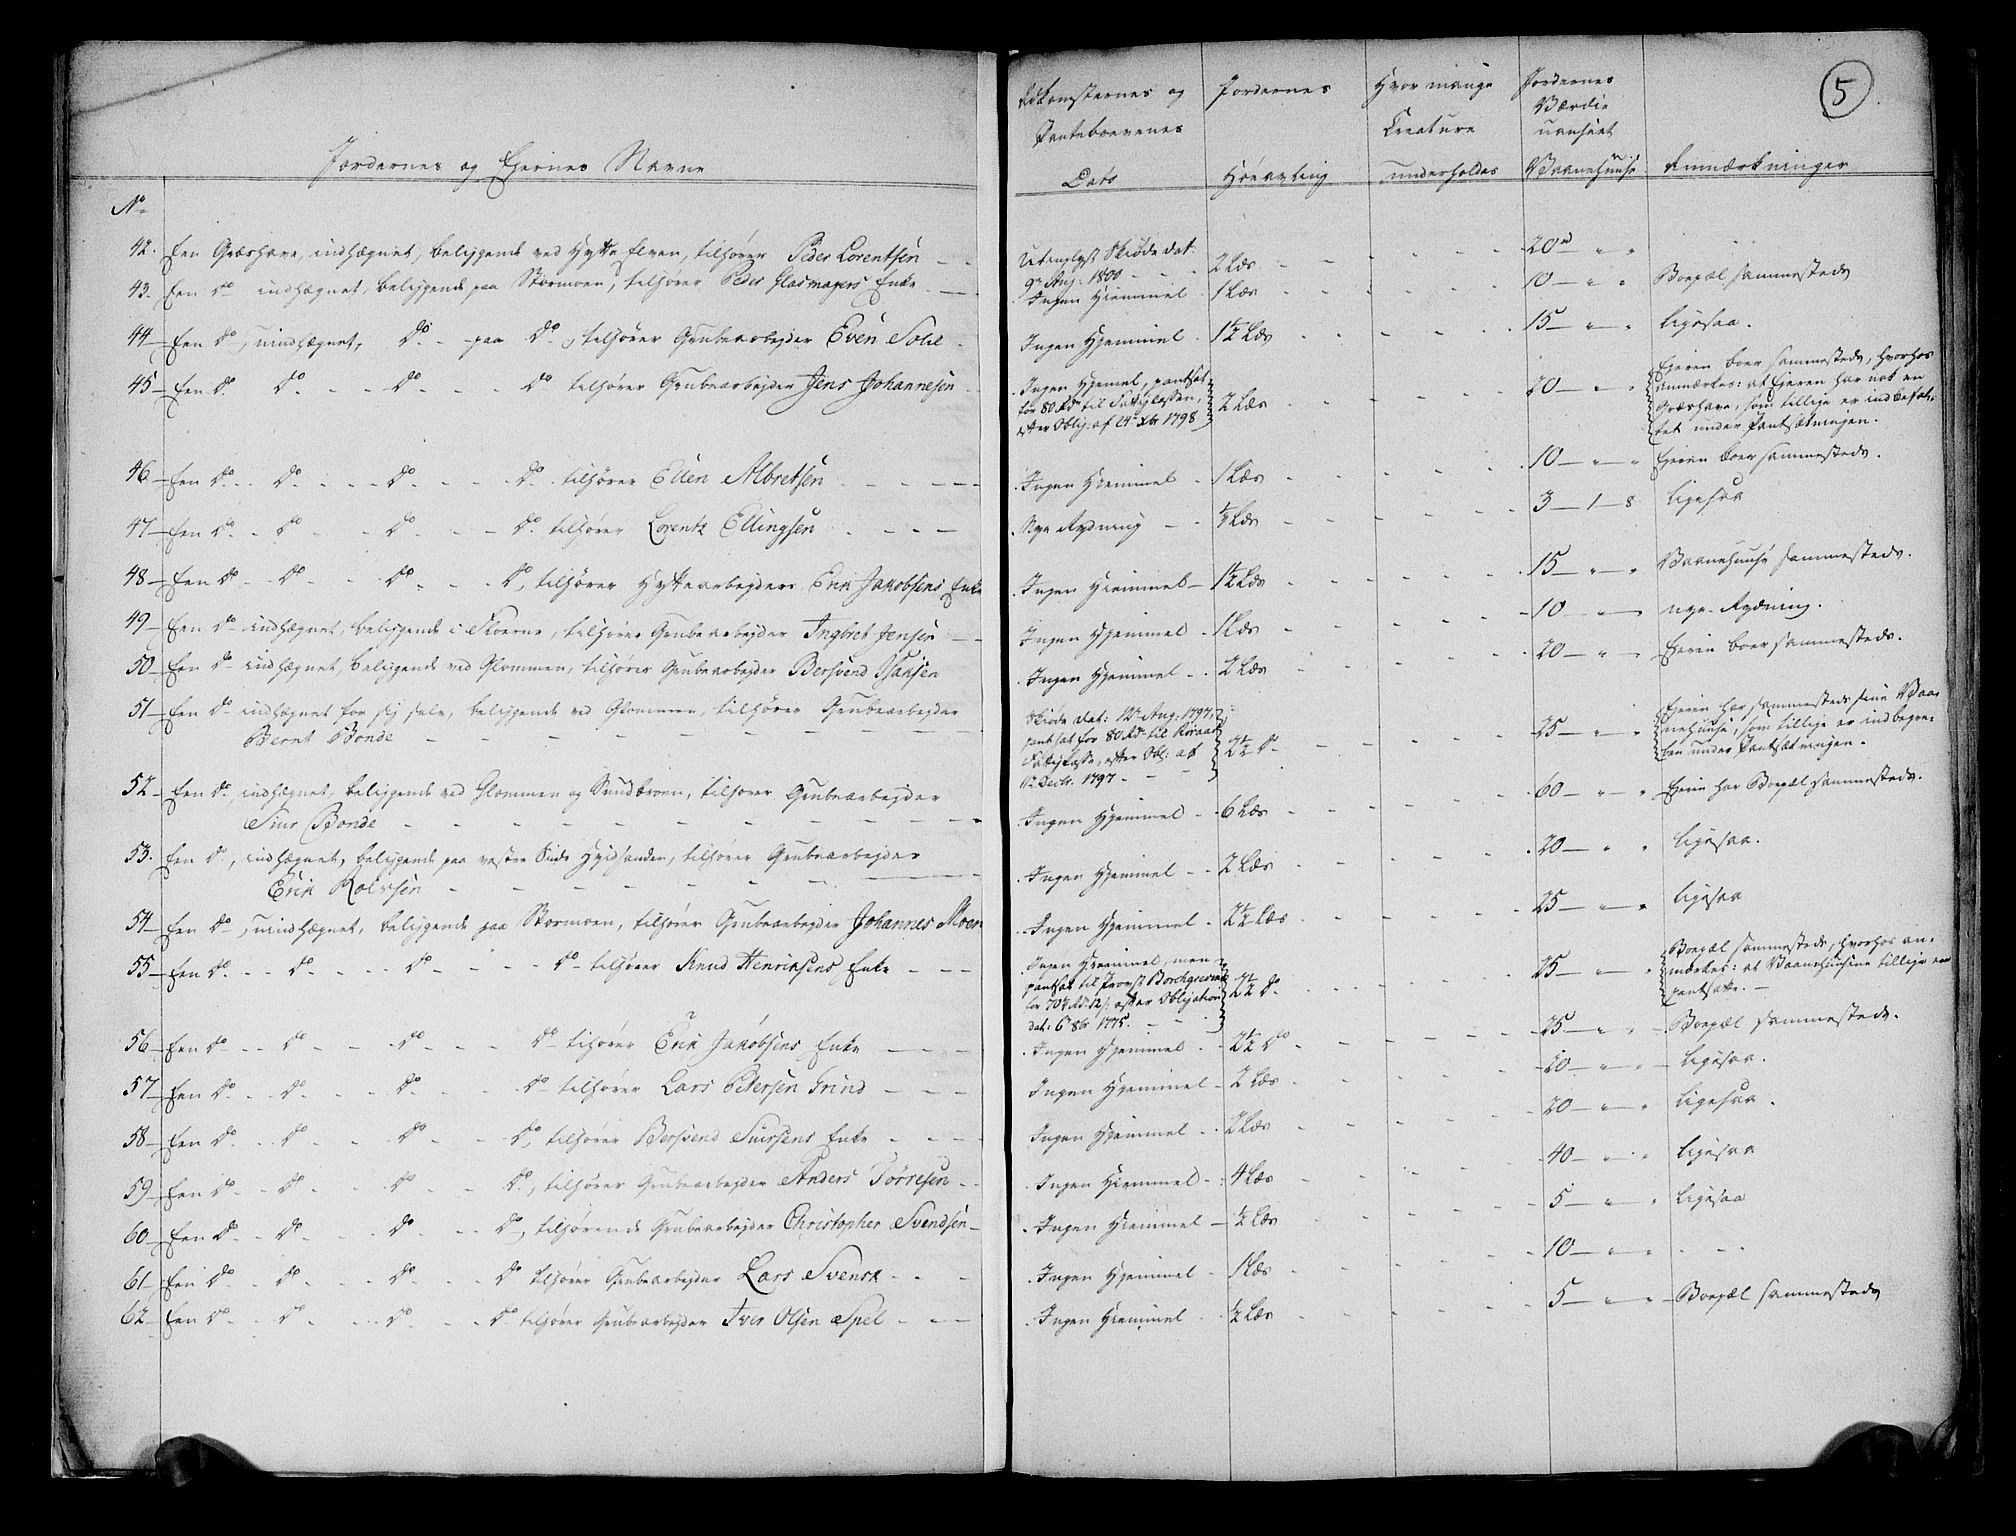 5
Jordernes og Ejernes Navne
Adkomsternes og Pantebrevenes Dato
Jordernes Høeavling
Hvor mange Creature underholdes
Jordernes Værdie uanseet Vaanehuuse
Anmærkninger
No
42. Een Græshave, indhægnet, beliggende ved Hytte Elven, tilhører Peder Lorentsen
Utinglyst Skiøde dat: 9de Aug: 1800 - 2 Læs - 20 rd " "
43. Een do indhægnet, beliggende paa Stormoen, tilhører Peder Glasmagers Enke
Ingen Hiemmel - 1 Læs - 10 " " Boepæl sammesteds
44 Een do, uindhægnet, do paa do, tilhører Grubearbejder Even Solie
Ingen Hjemmel - 1½ Læs - 15 " " ligesaa.
45 Een do do do do tilhører Grubearbejder Jens Johannesen
Ingen Hjemel, pantsat
for 80 Rdr til Fattigkassen,
efter Oblig: af 24de Xbr 1798 - 2 Læs - 20 " "
Ejeren boer sammesteds, hvorhos
anmærkes: at Ejeren har nok en
Græshave, som tillige er indbefat-
tet under Pantsætningen.
46 Een do do do do tilhører Ellen Albretsen
Ingen Hiemmel - 1 Læs - 10 " " Ejeren boer sammesteds.
47 Een do do do do tilhører Lorentz Ellingsen
Nye Rydning - ½ Læs - 3 - 1 - 8 ligesaa
48 Een do do do do, tilhører Hyttearbejders Erik Jakobsens Enke
Ingen Hiemmel - 1½ Læs - 15 " " Vaanehuuse sammesteds.
49 Een do indhægnet, beliggende i Floerne, tilhører Grubearbejder Ingbret Jensen
Ingen Hjemmel - 1 Læs - 10 " nye Rydning.
50 Een do indhægnet, beliggende ved Glommen, tilhører Grubearbejder Bersvend Hansen
Ingen Hjemmel - 2 Læs - 20 " Ejeren boer sammesteds.
51 Een do indhægnet for sig selv, beliggende ved Glommen, tilhører Grubearbejder
Bernt Bonde
Skiøde dat: 12te Aug: 1797,
pantsat for 80 Rdr til Røraas
Fattigkasse, efter Obl: af
12 Decbr. 1797 - 2½ do - 25 " "
Ejeren har sammesteds sine Vaa-
nehuuse, som tillige er indbegre-
ben under Pantsætningen.
52 Een do, indhægnet, beliggende ved Glommen og Sundbroen, tilhører Grubearbejder
Siur Bonde
Ingen Hjemmel - 6 Læs - 60 " " Ejeren har Boepæl sammesteds.
53. Een do, indhægnet, beliggende paa vestre Side Hyidsanden, tilhører Grubearbejder
Erik Rolvsen
Ingen Hjemmel - 2 Læs - 20 " " ligesaa.
54 Een do, uindhægnet, beliggende paa Stormoen, tilhører Grubearbejder Johannes Moen
Ingen Hjemmel - 2½ Læs - 25 " " ligesaa
55 Een do do do do tilhører Knud Henriksens Enke
Ingen Hiemmel, men
pantsat til Provst Borchgrevink
for 70 Rdr 12 s: efter Obligation
dat: 6te 8br 1775. - 2½ do - 25 " "
Boepæl sammesteds, hvorhos an-
mærkes: at Vaanehuusene tillige ere
pantsatte.
56 Een do do do do tilhører Erik Jakobsens Enke
Ingen Hjemmel - 2½ do - 25 " " Boepæl sammesteds.
57 Een do do do do tilhører Lars Pedersen Grind
Ingen Hjemmel - 2 Læs - 20 " " ligesaa.
58 Een do do do do, tilhører Bersvend Siursens Enke
Ingen Hjemmel - 2 Læs - 20 " " ligesaa.
59 Een do do do do, tilhører Grubearbejder Anders Tørresen
Ingen Hiemmel - 4 Læs - 40 " " ligesaa
60 Een do do do do, tilhørende Grubearbejder Christopher Svendsen
Ingen Hiemmel - ½ Læs - 5 " " ligesaa
61 Een do do do do tilhører Grubearbejder Lars Svensk
Ingen Hjemmel - 1 Læs - 10 " "
62 Een do do do do tilhører Grubearbejder Iver Olsen Spel
Ingen Hiemmel - ½ Læs - 5 " " Boepæl sammesteds